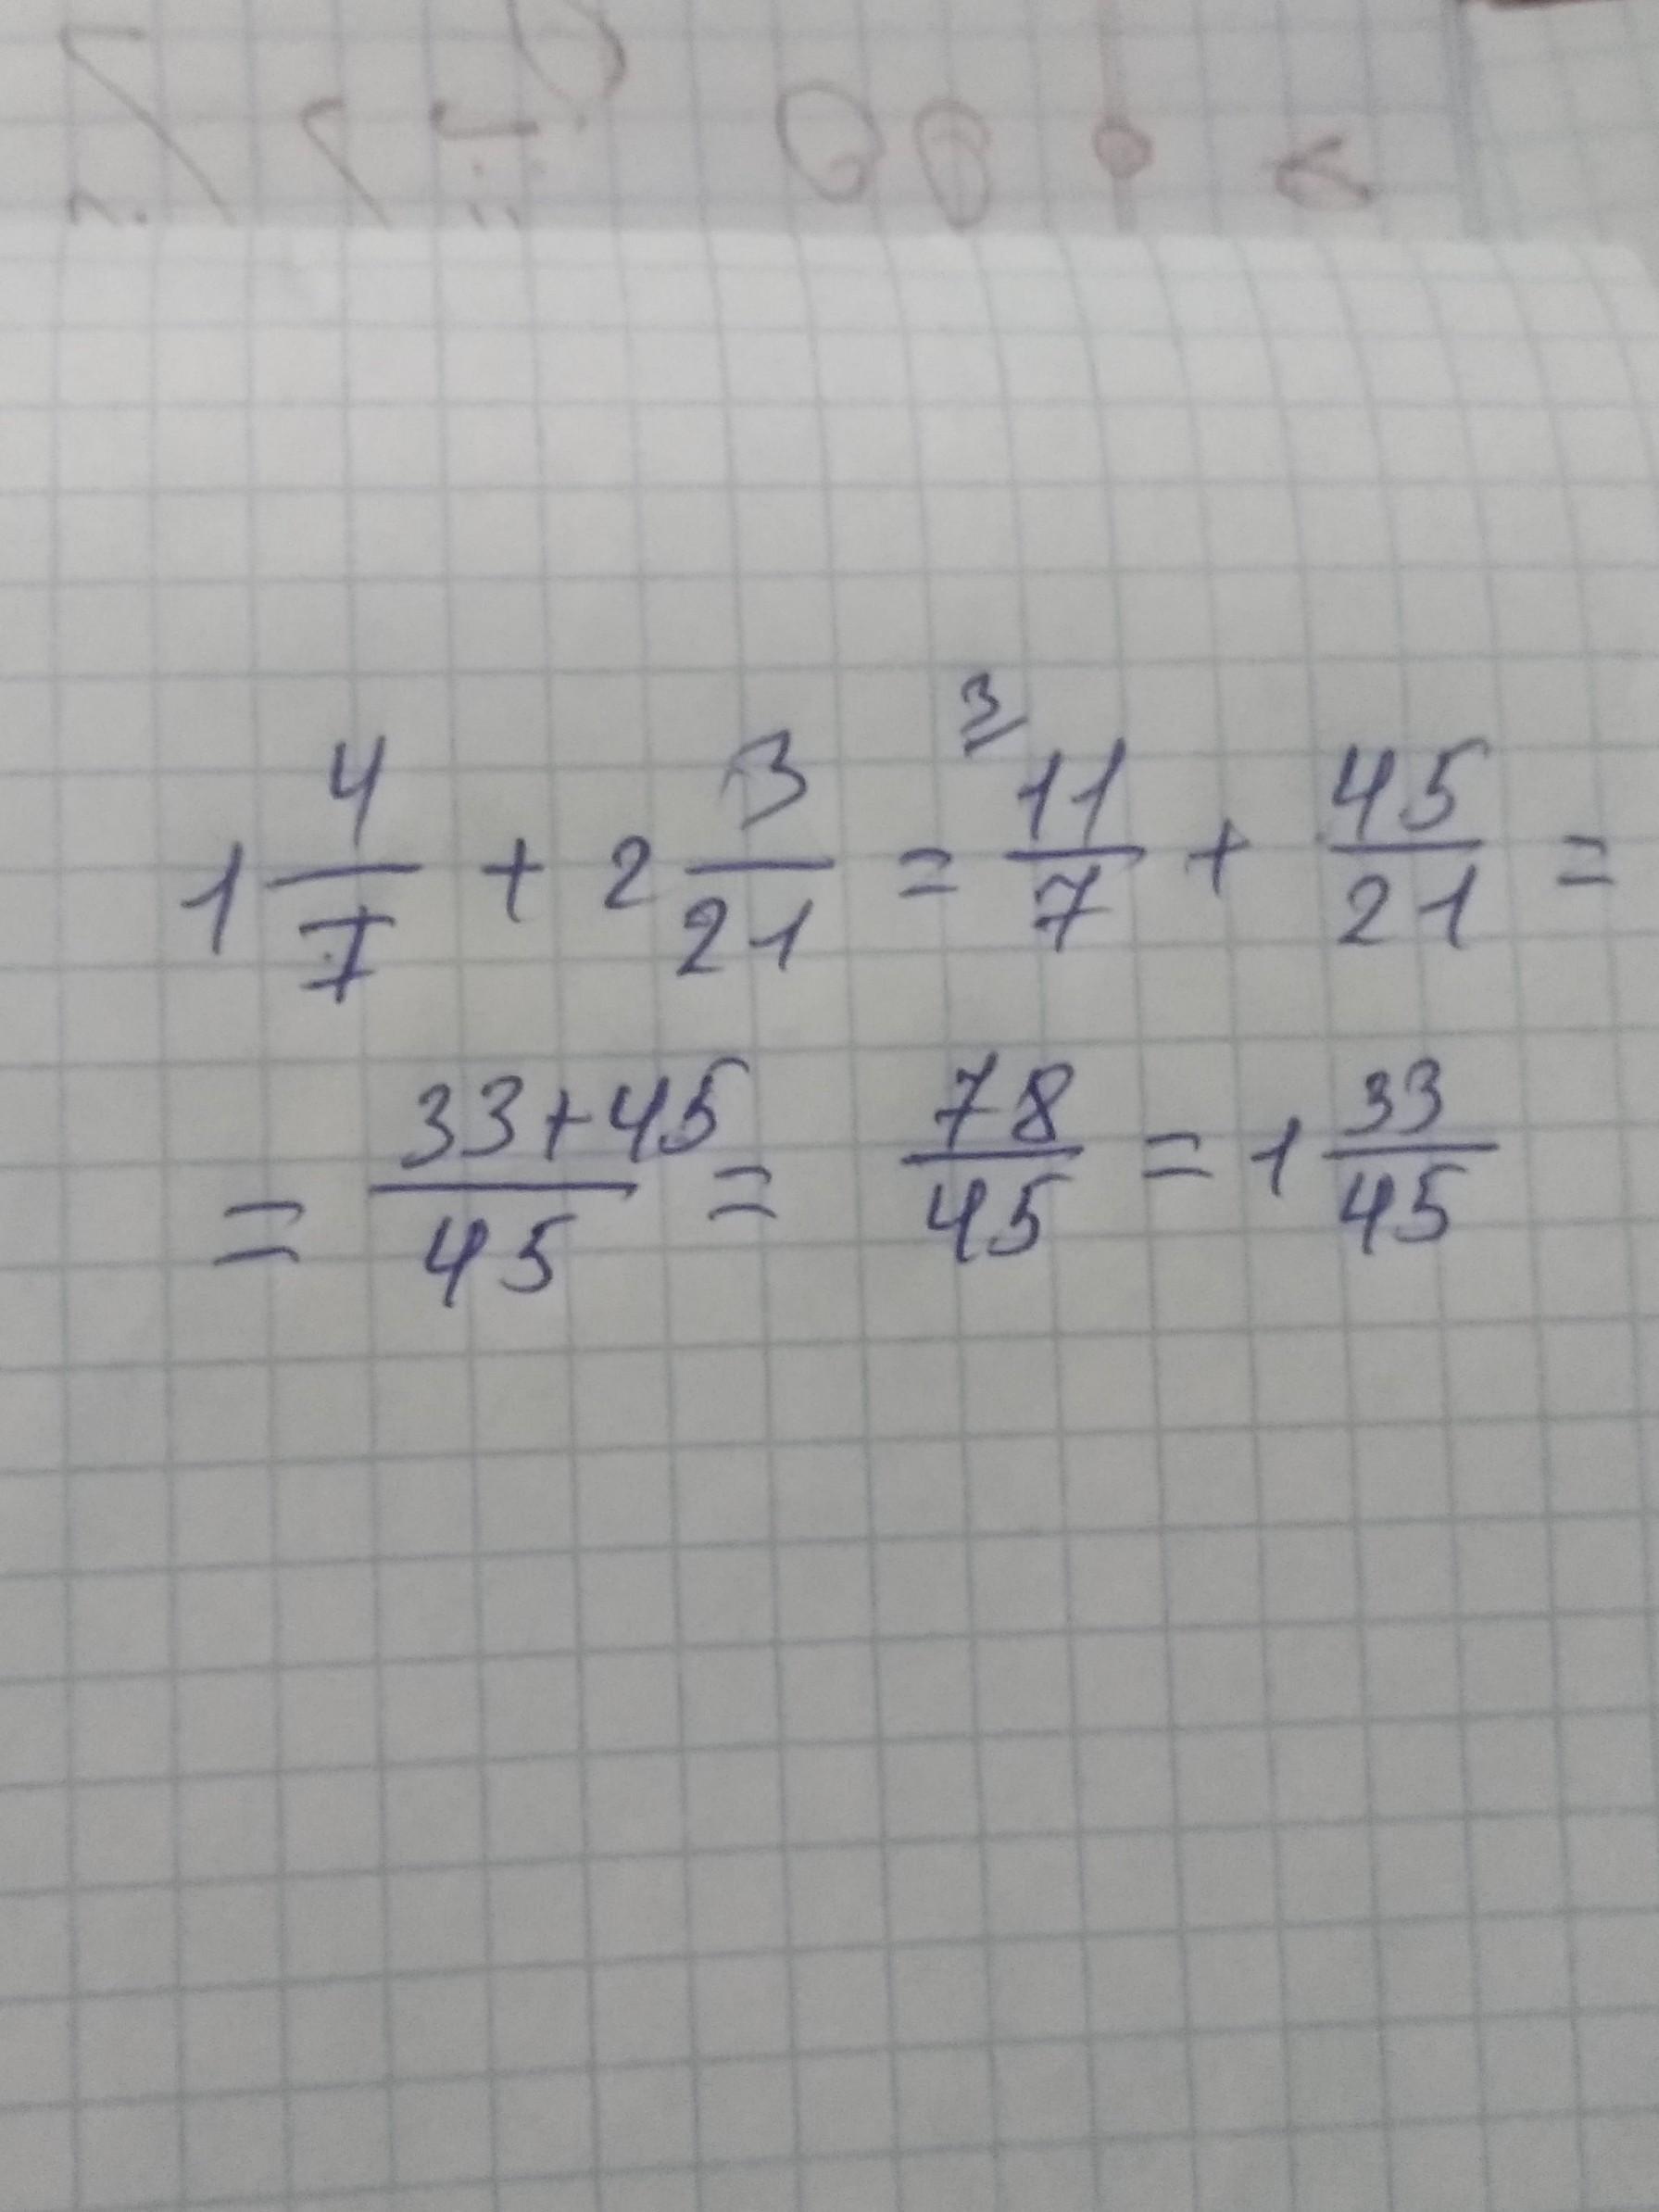 1 4/7 + 2 3/21 = 3/ 11/7 + 45/21 =
= 33+45/45 = 78/45 = 1 33/45